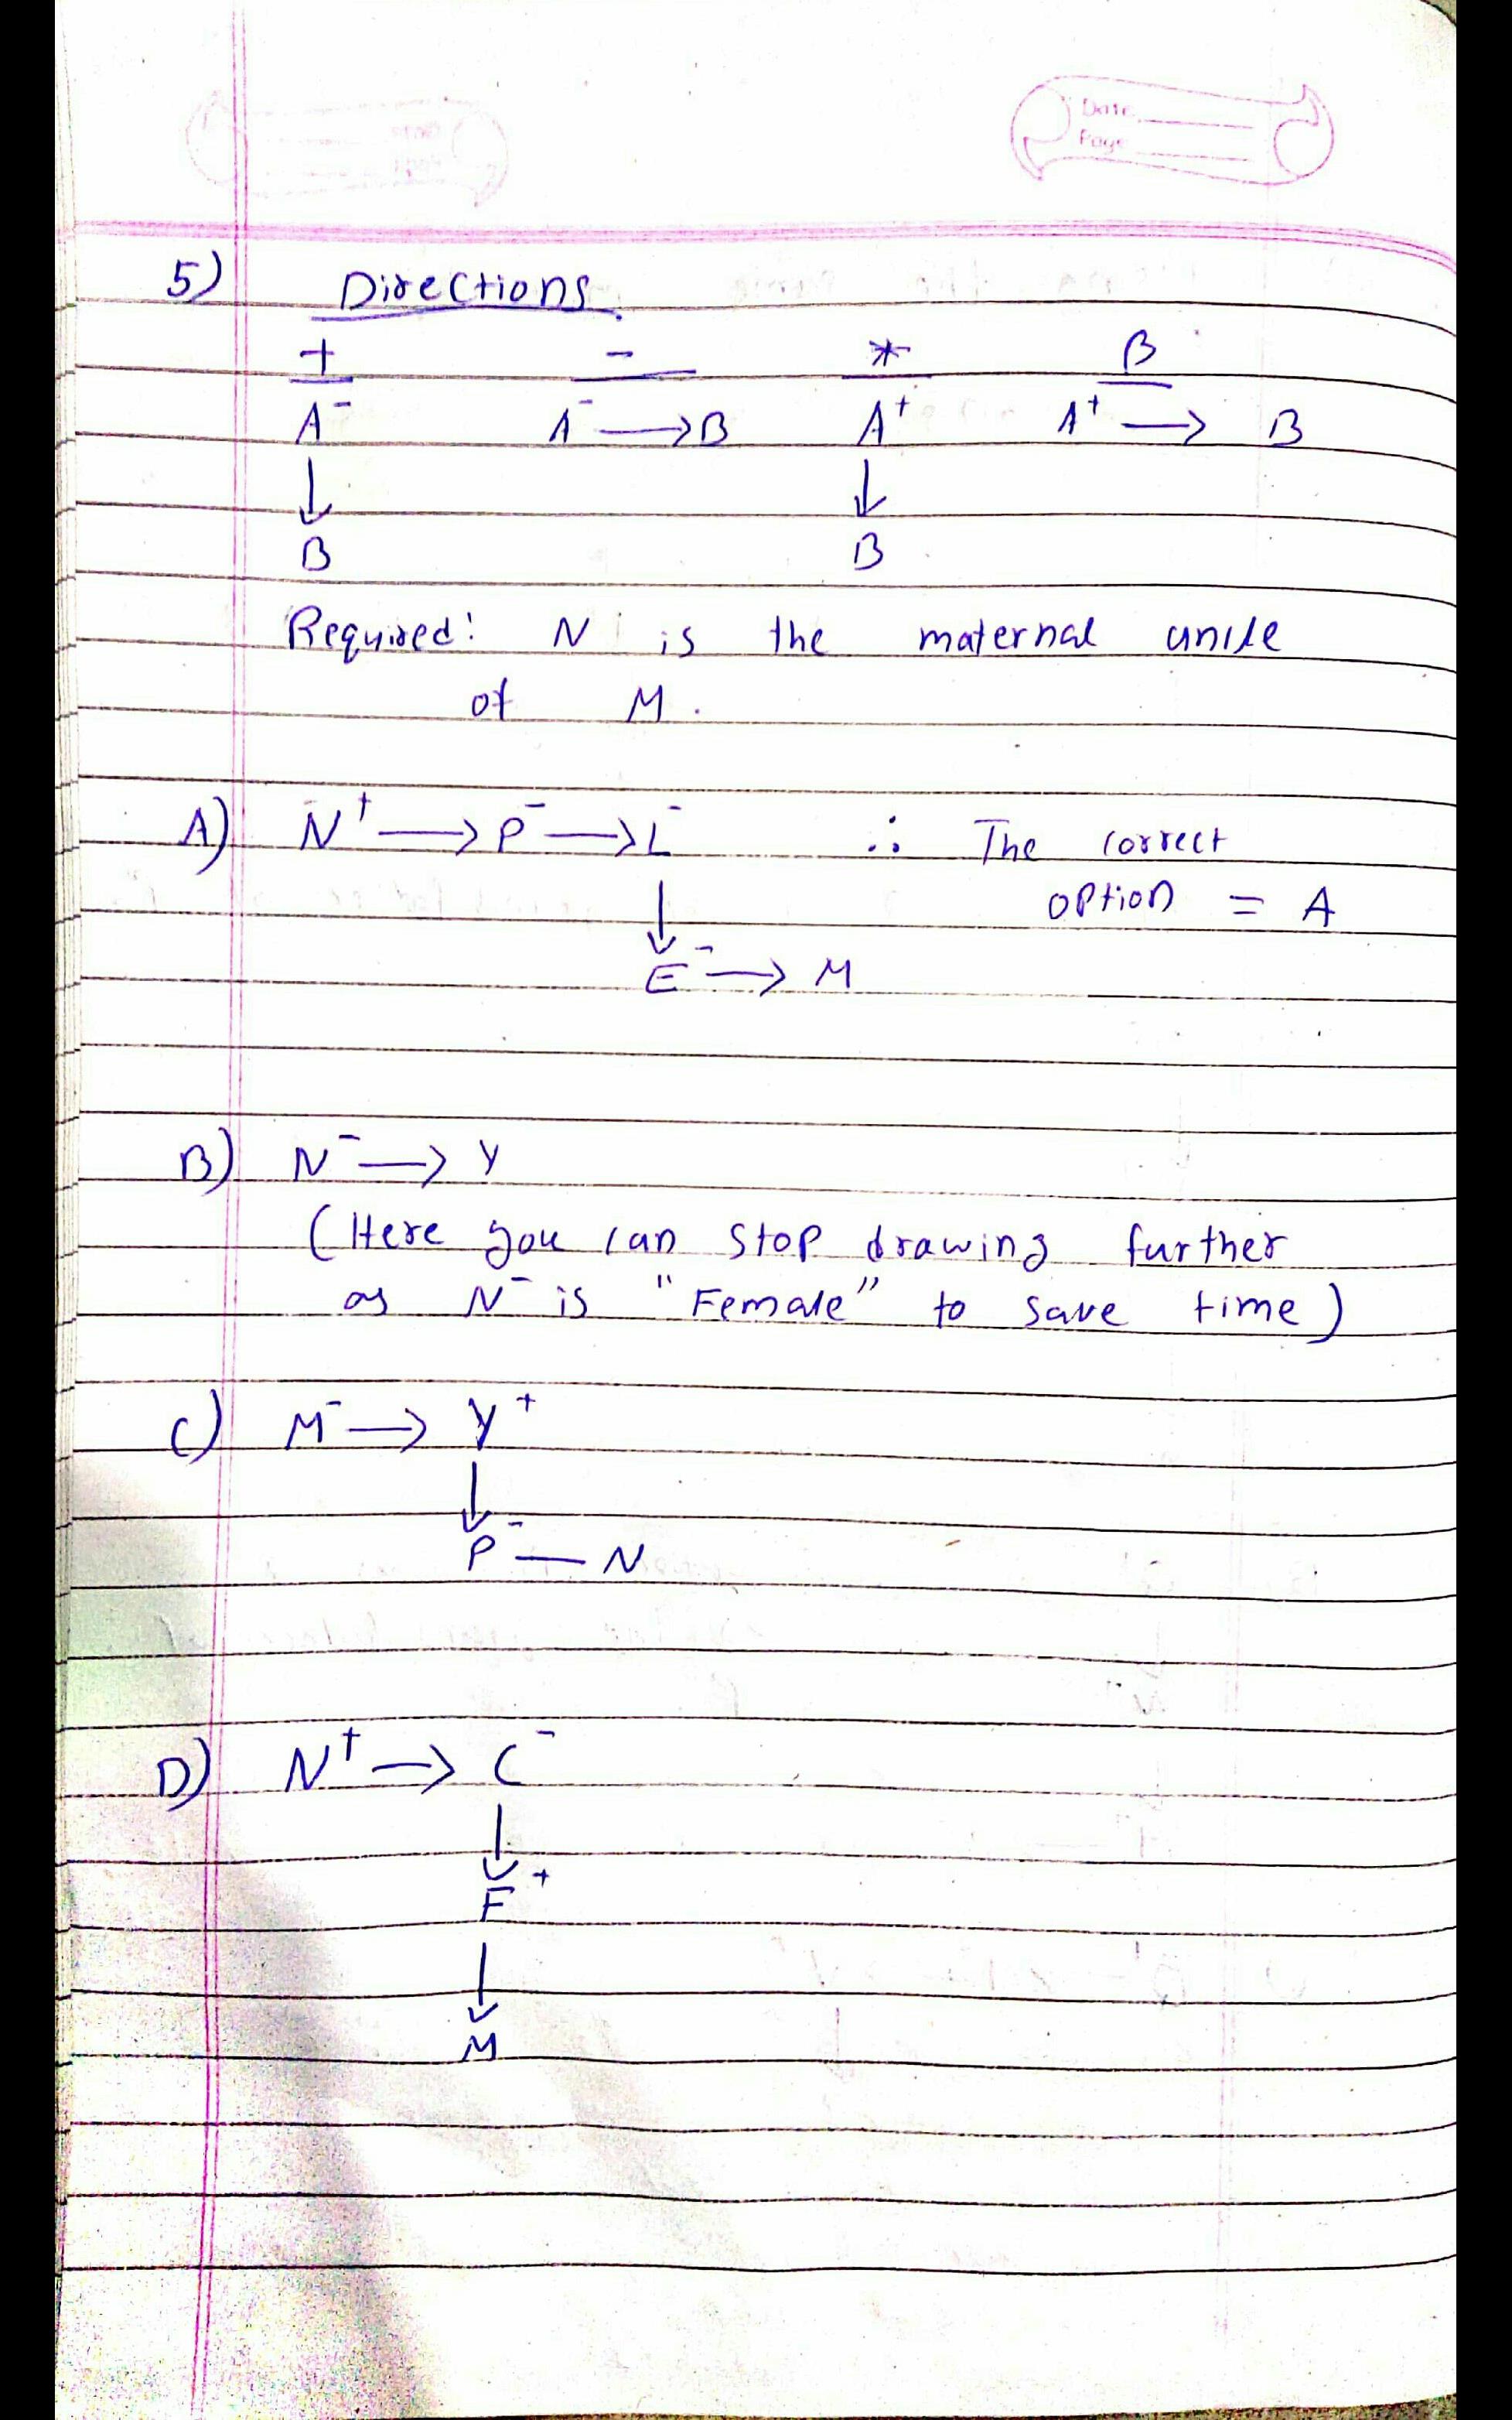 Date
Page
5) Directions
+ - * B
A⁻ A⁻ → B A⁺ A⁺ → B
↓ ↓
B B
Required: N is the maternal uncle
of M.
A) N⁺ → P⁻ → L⁻ ∴ The correct
option = A
↓
E⁻ → M
B) N⁻ → Y
(Here you can stop drawing further
as N⁻ is "Female" to save time)
C) M⁻ → Y⁺
↓
P⁻ — N
D) N⁺ → C⁻
↓
F⁺
↓
M